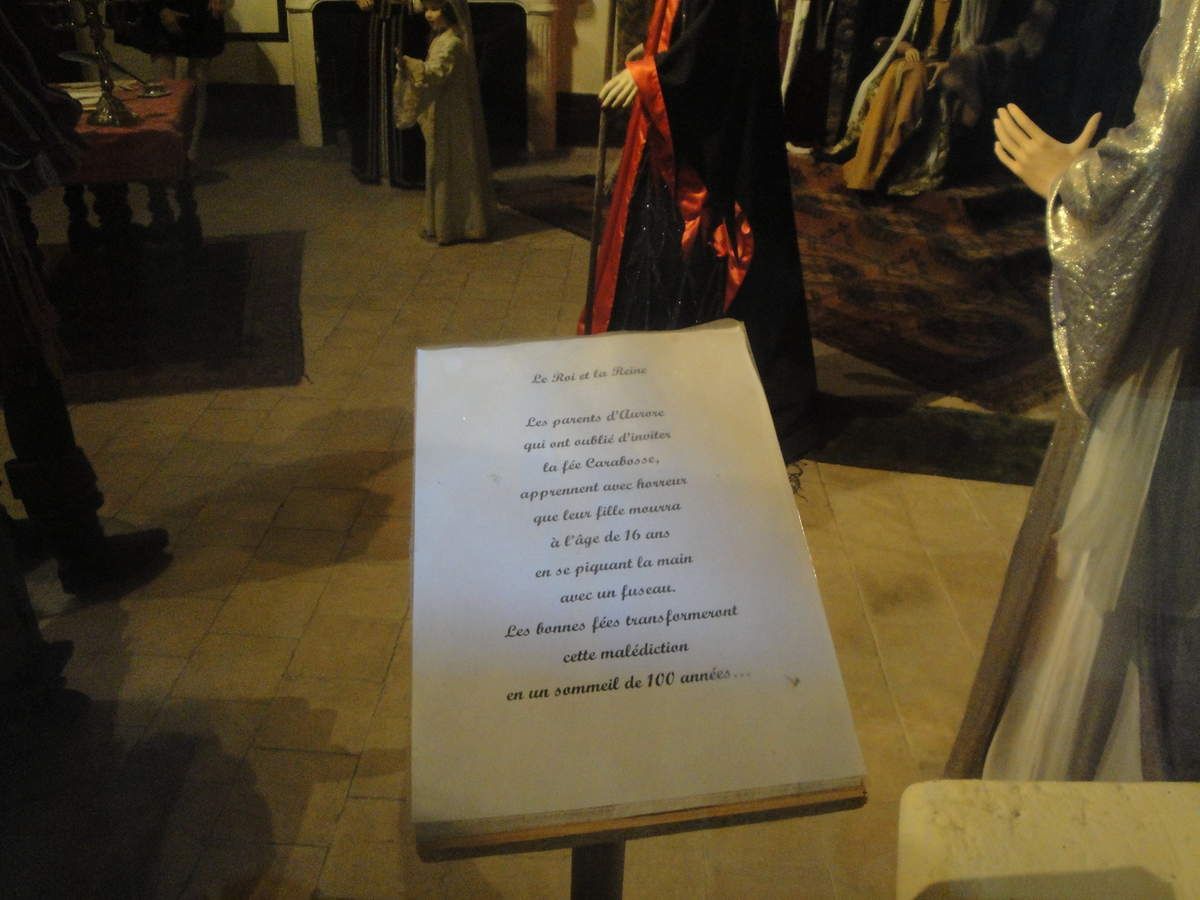 Le Roi et la Reine
Les parents d'Aurore
qui ont oublié d'inviter
la fée Carabosse,
apprennent avec horreur
que leur fille mourra
à l'âge de 16 ans
en se piquant la main
avec un fuseau.
Les bonnes fées transformeront
cette malédiction
en un sommeil de 100 années...